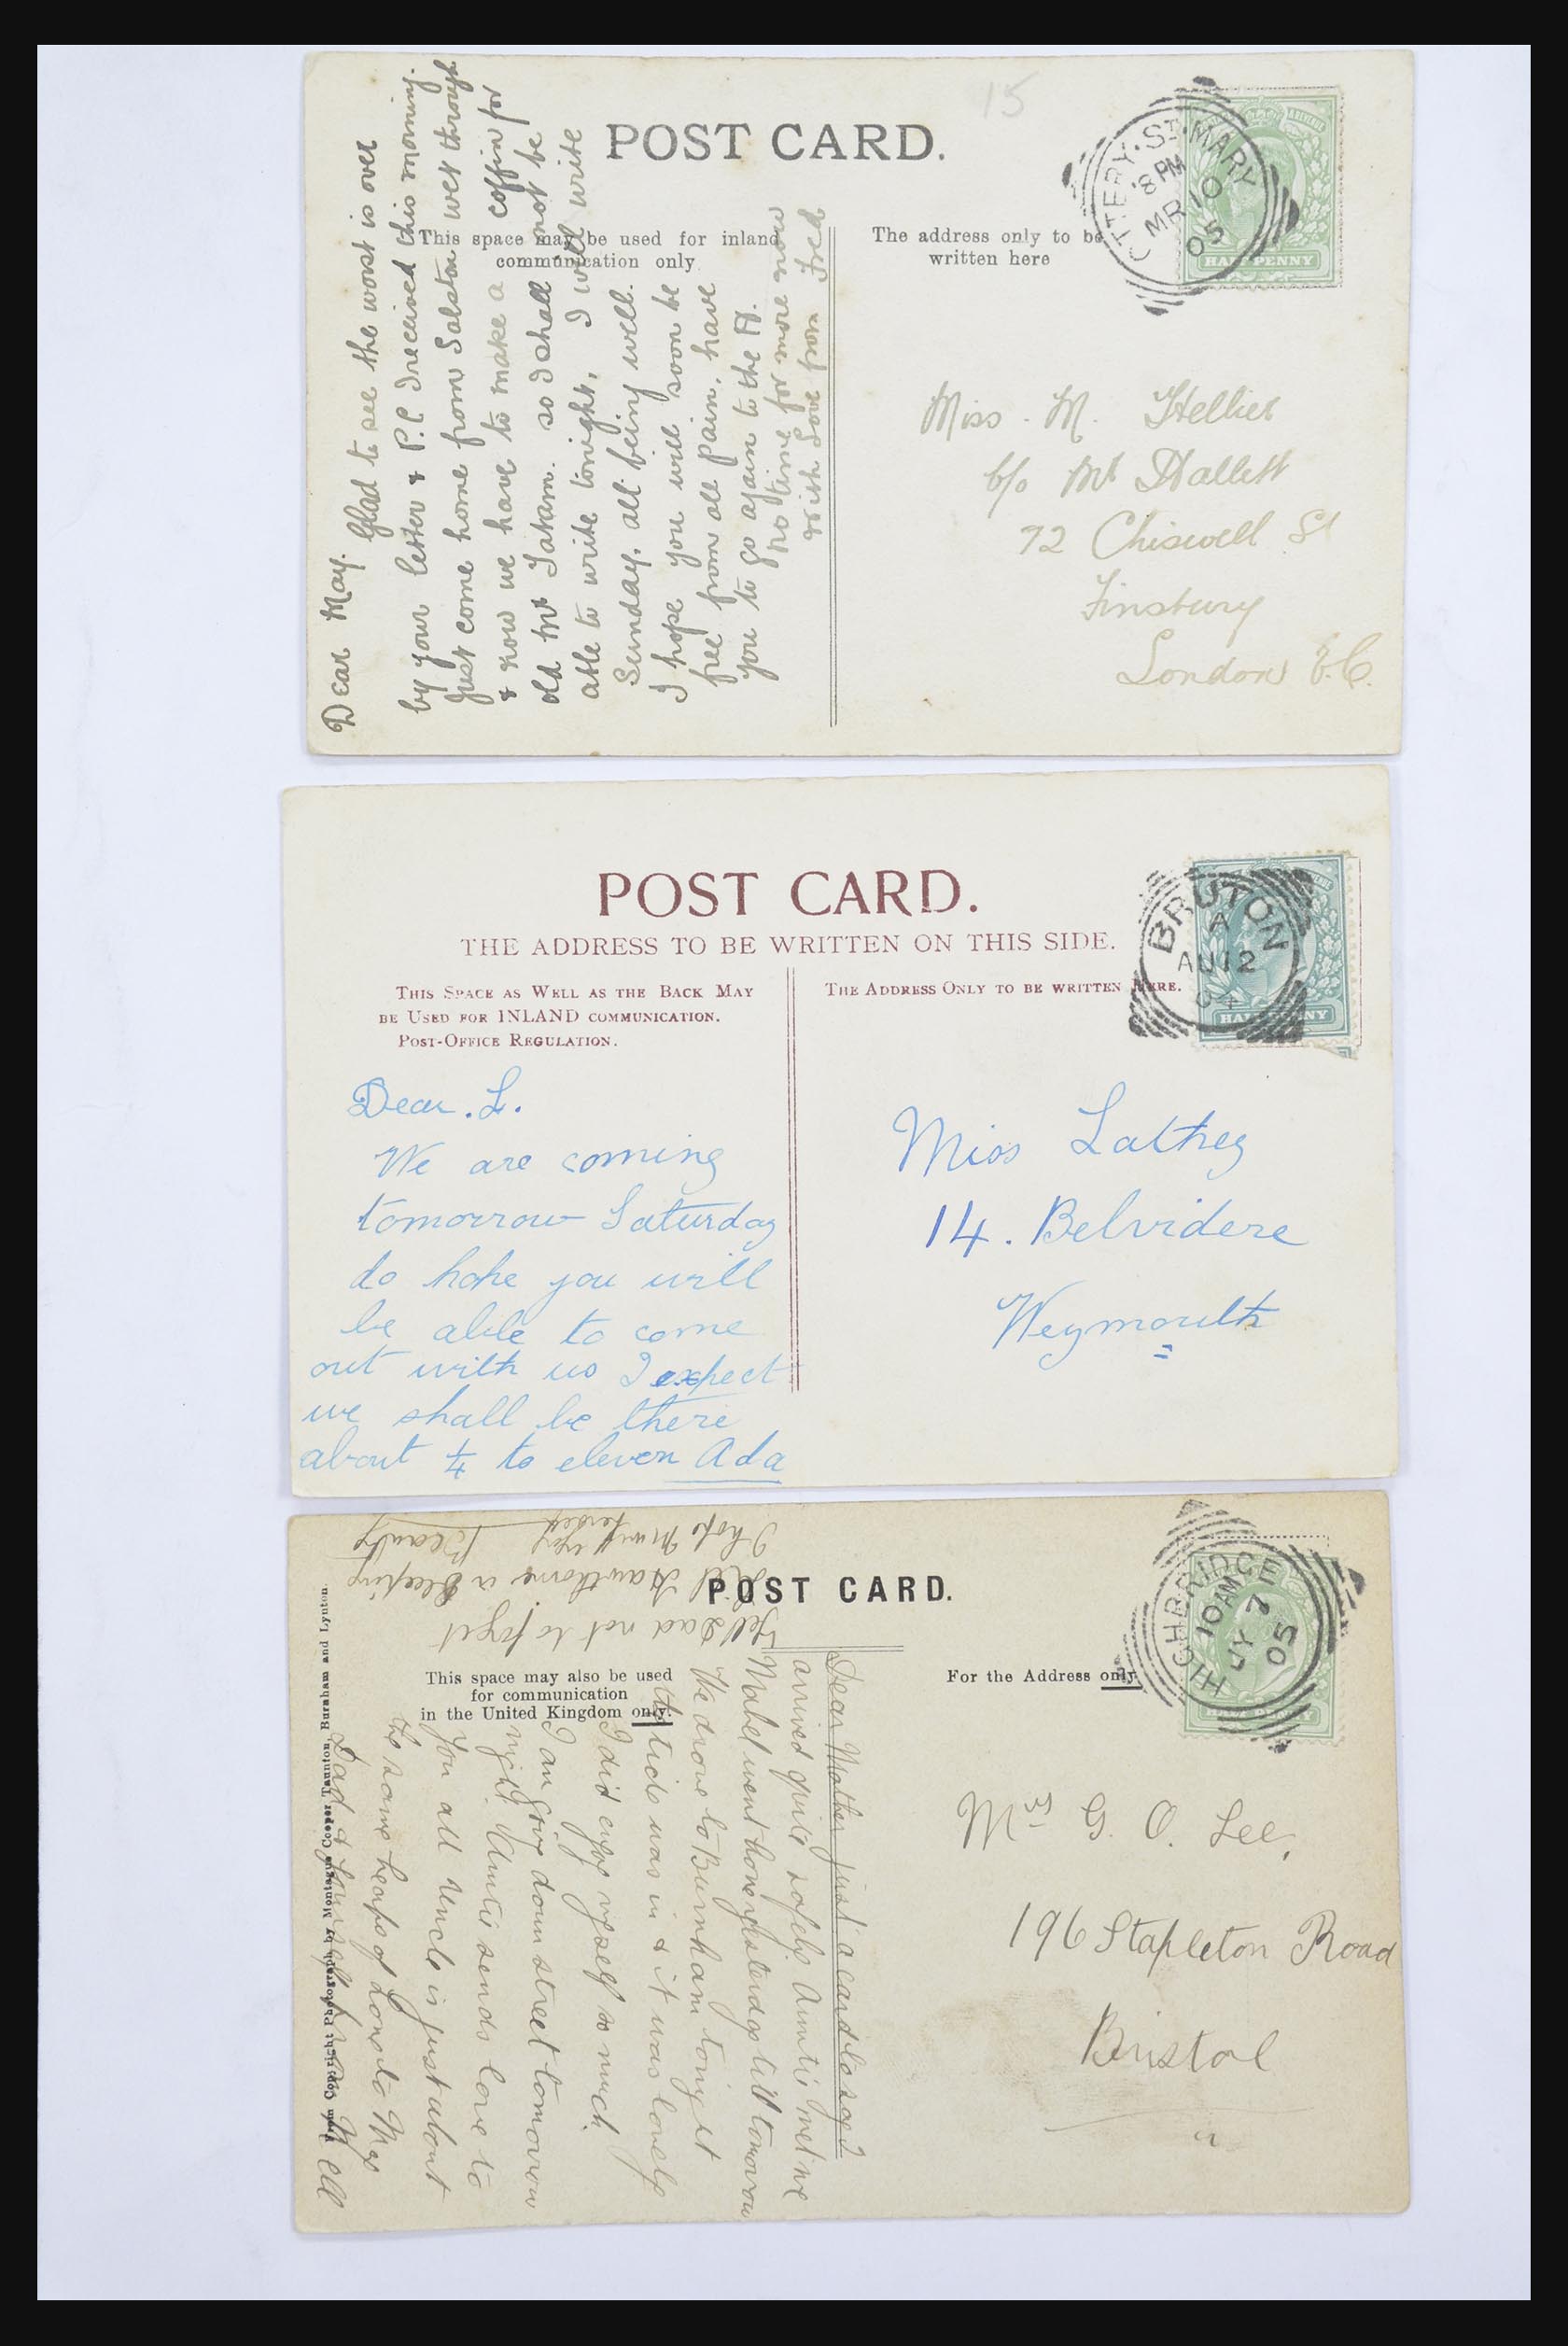 15
POST CARD.
This space may be used for inland
communication only
The address only to be
written here
OTTERY·ST·MARY
8 PM
MR 10
05
HALFPENNY
Dear May.
Glad to see the worst is over
by your letter & P.C. I received this morning.
Just come home from Salston wet through
& now we have to make a coffin for
old Mr Tatam. so I shall not be
able to write tonight, I will write
Sunday, all being well.
I hope you will soon be
free from all pain, have
you to go again to the H.
no time for more now
with Love from Fred
Miss. M. Hellier
c/o Mr Hallett
72 Chiswell St
Finsbury
London E.C.
POST CARD.
THE ADDRESS TO BE WRITTEN ON THIS SIDE.
THIS SPACE AS WELL AS THE BACK MAY
BE USED FOR INLAND COMMUNICATION.
POST-OFFICE REGULATION.
THE ADDRESS ONLY TO BE WRITTEN HERE.
BRUTON
A
AU 12
04
HALFPENNY
Dear. L.
We are coming
tomorrow Saturday
do hope you will
be able to come
out with us I expect
we shall be there
about 1/4 to eleven Ada
Miss Lathey
14. Belvidere
Weymouth
POST CARD.
This space may also be used
for communication
in the United Kingdom only.
For the Address only.
HIGHBRIDGE
10 AM
JY 7
05
HALFPENNY
From Copyright Photograph by Montague Cooper Taunton, Burnham and Lynton.
Dear Mother just a card to say I
arrived quite safely. Auntie met me
Mabel went home yesterday till tomorrow
We drove to Burnham tonight
the tide was in & it was lovely
I did enjoy myself so much.
I am going down street tomorrow
night. Auntie sends love to
you all Uncle is just about
the same heaps of Love to May
Dad & yourself from Nell
Tell Dad not to forget
Hawthorne in Sleeping
Beauty
I hope
Mrs G. O. Lee,
196 Stapleton Road
Bristol